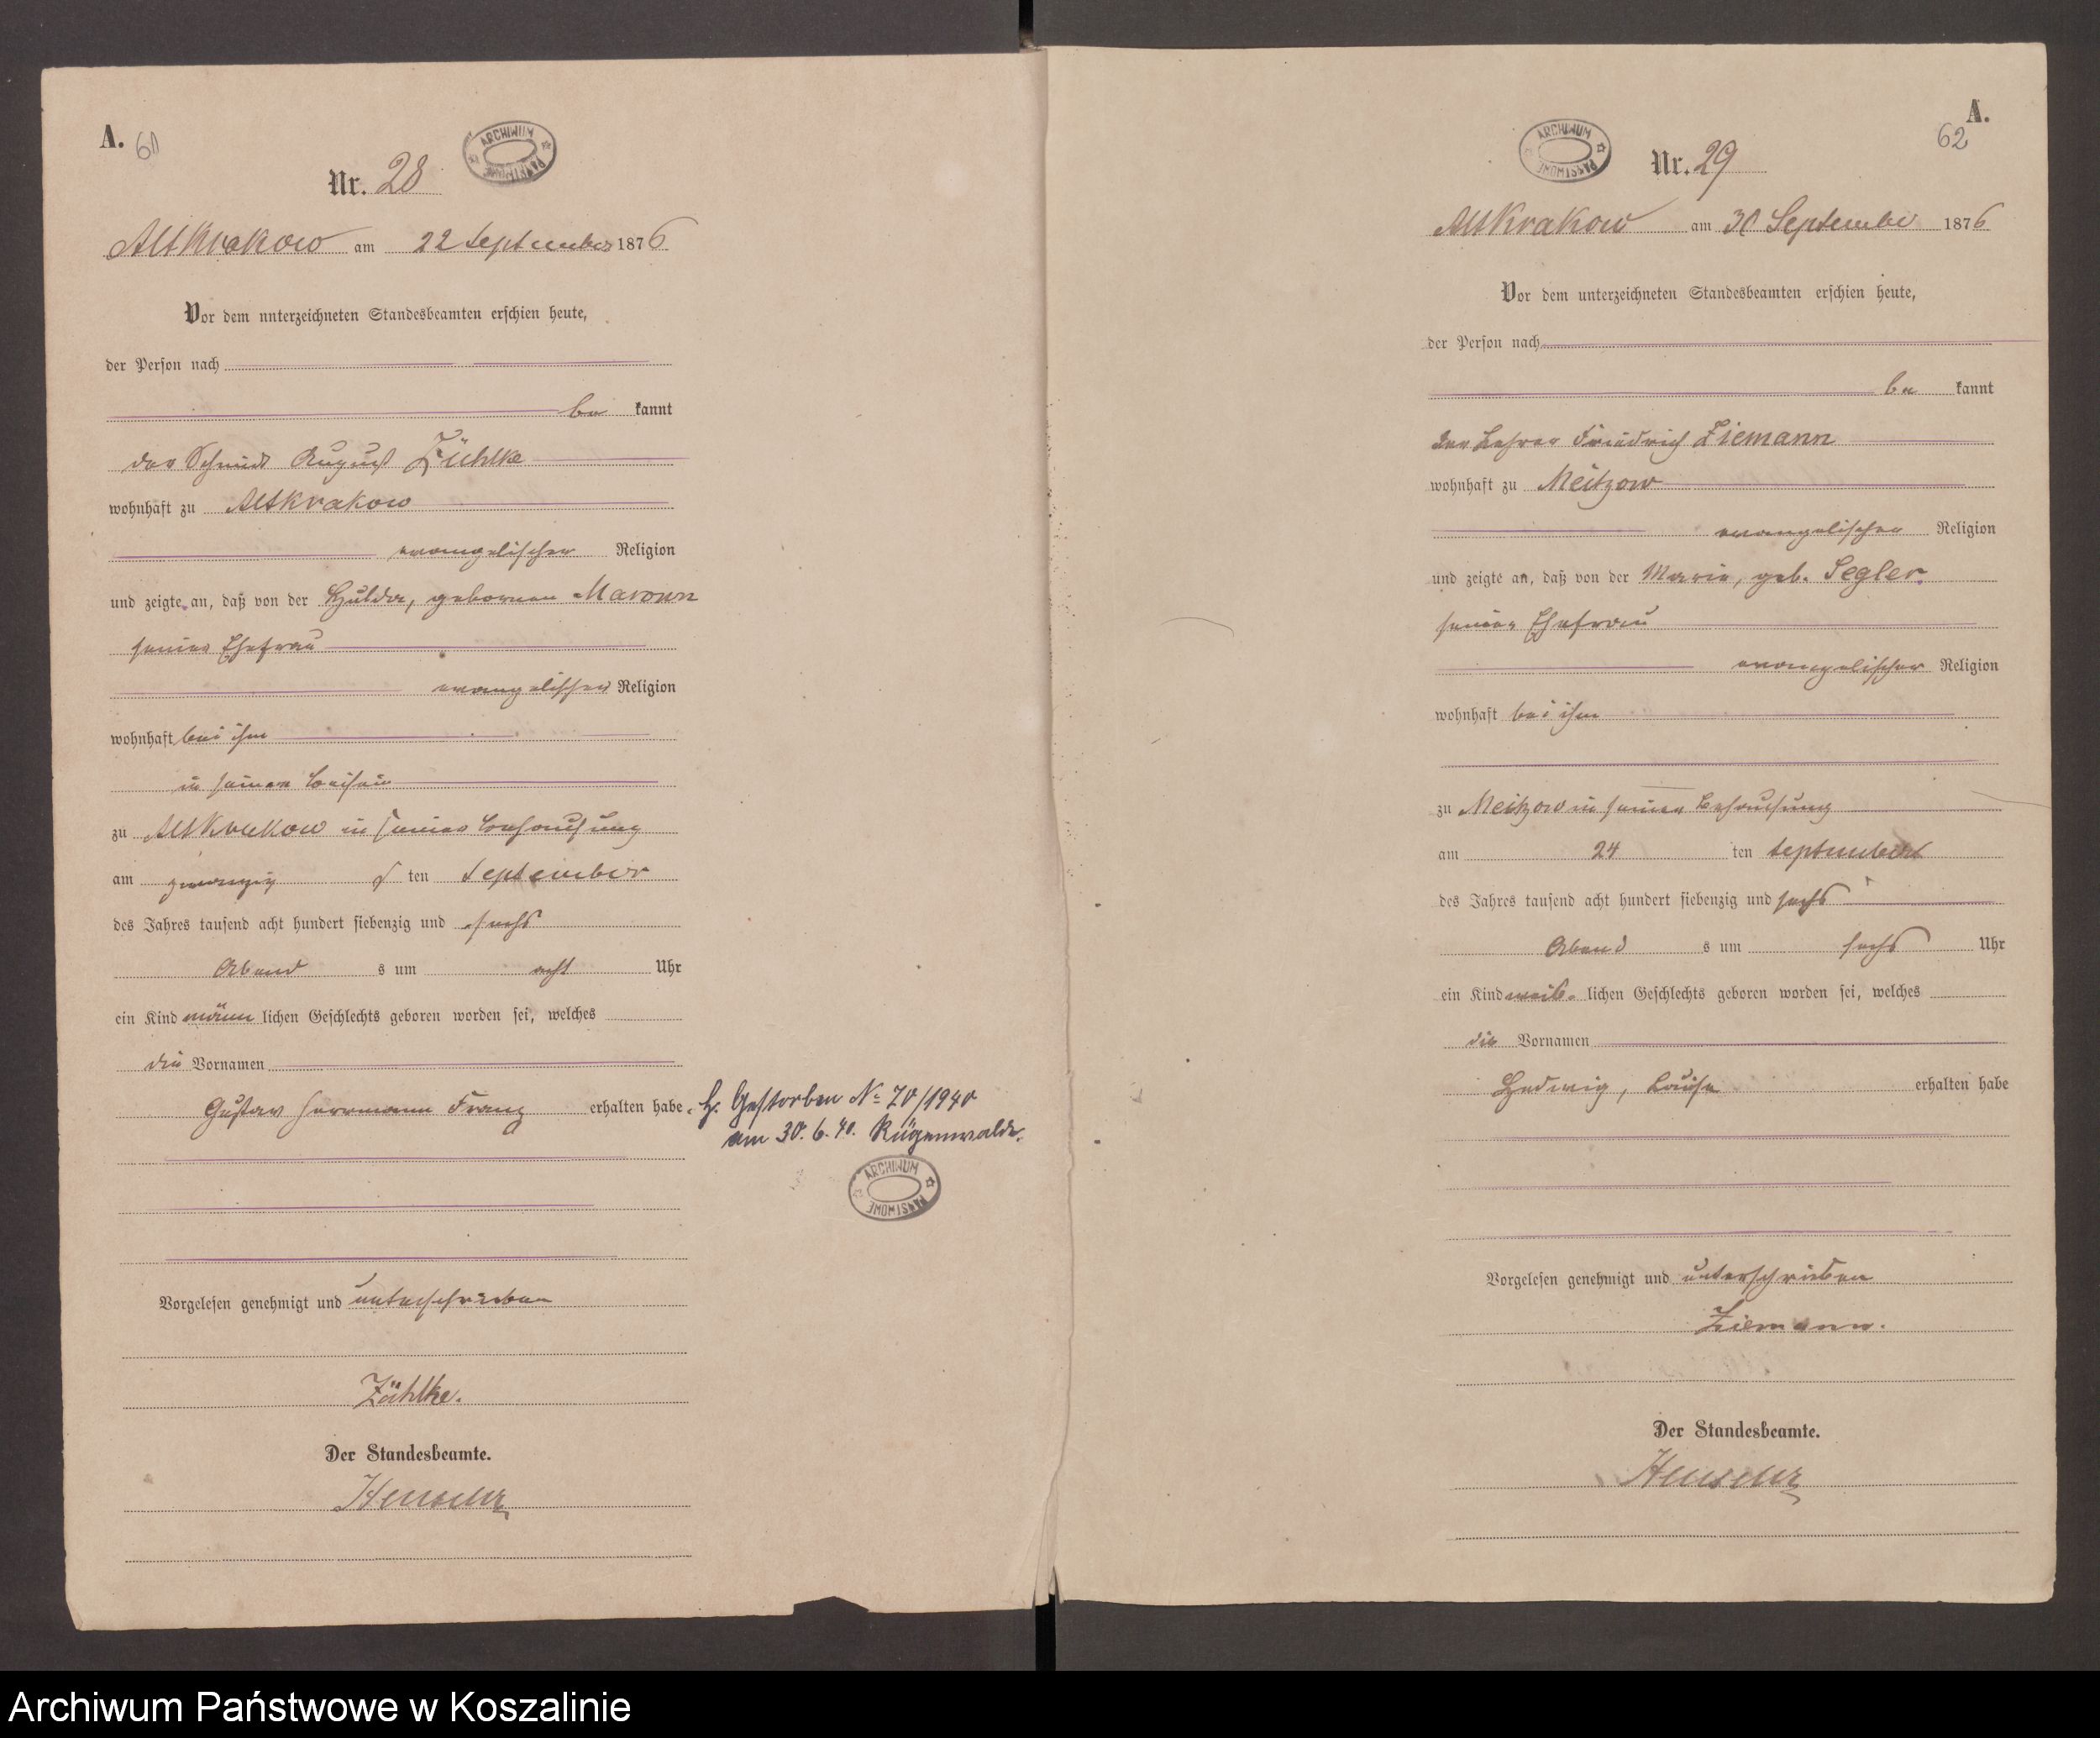 A. 61
ARCHIWUM PAŃSTWOWE
Nr. 28
Altkrakow am 22 September 1876
Vor dem unterzeichneten Standesbeamten erschien heute,
der Person nach
be kannt
der Schmidt August Zühlke
wohnhaft zu Altkrakow
evangelischer Religion
und zeigte an, daß von der Hulda, geborenen
seiner Ehefrau
evangelischer Religion
wohnhaft bei ihm
in seinem Beisein
zu Altkrakow in seiner Behausung
am zwanzig s ten September
des Jahres tausend acht hundert siebenzig und sechs
Abend s um acht Uhr
ein Kind männ lichen Geschlechts geboren worden sei, welches
die Vornamen
Gustav Herrmann Franz erhalten habe.
H. Gestorben № 70/1940
am 30. 6. 40. Rügenwalde.
ARCHIWUM PAŃSTWOWE
Vorgelesen genehmigt und unterschrieben
Zühlke.
Der Standesbeamte.
A.
62
ARCHIWUM PAŃSTWOWE
Nr. 29
Altkrakow am 30 September 1876
Vor dem unterzeichneten Standesbeamten erschien heute,
der Person nach
be kannt
der Lehrer Friedrich Ziemann
wohnhaft zu Meitzow
evangelischer Religion
und zeigte an, daß von der Marie, geb. Segler
seiner Ehefrau
evangelischer Religion
wohnhaft bei ihm
zu Meitzow in seiner Behausung
am 24 ten September
des Jahres tausend acht hundert siebenzig und sechs
Abend s um sechs Uhr
ein Kind weib- lichen Geschlechts geboren worden sei, welches
die Vornamen
Hedwig, Louise erhalten habe
Vorgelesen genehmigt und unterschrieben
Ziemann.
Der Standesbeamte.
Archiwum Państwowe w Koszalinie